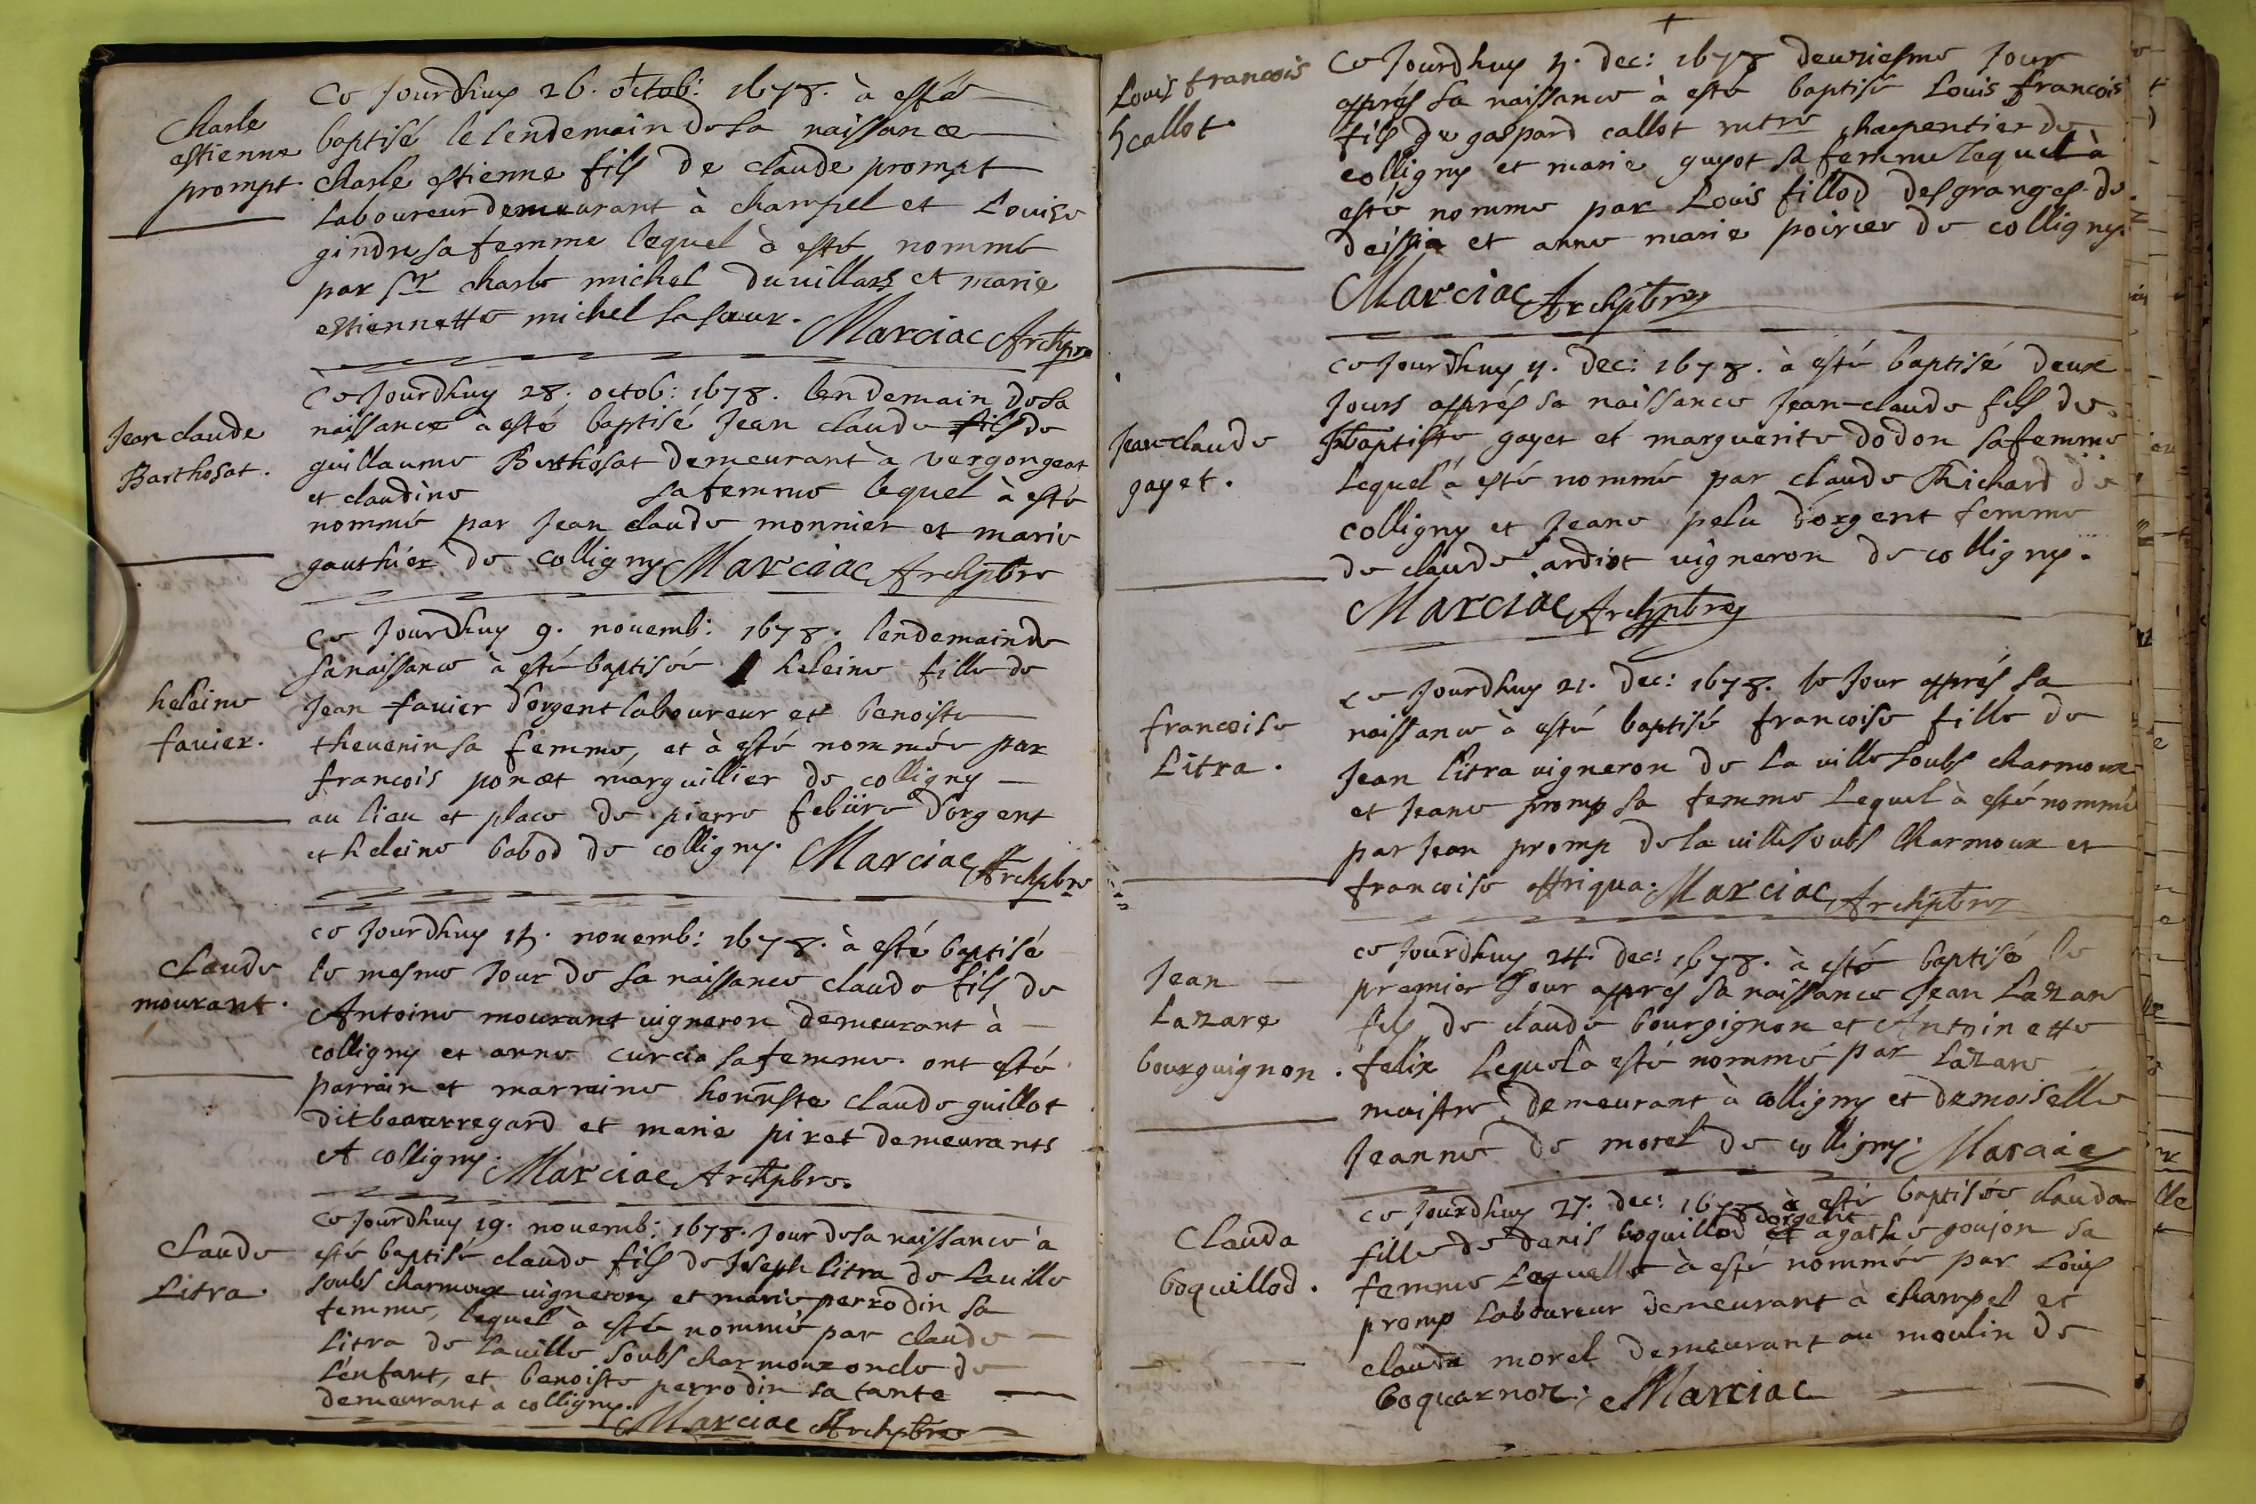 Charle
estienne
prompt.
Ce Jourdhuy 26. octob: 1678. à esté
baptisé le lendemain de sa naissance
charle estienne fils de claude prompt
Laboureur demeurant à champel et Louise
gindre sa femme lequel à esté nommé
par Sr charle michel du villars et marie
estiennette michel sa sœur. Marciac Archpre
Jean claude
Barthosat.
Ce Jourdhuy 28. octob: 1678. lendemain de sa
naissance a esté baptisé Jean claude fils de
guillaume Berthosat demeurant à vergongeat
et claudine sa femme lequel à esté
nommé par Jean claude monnier et marie
gauthier de colligny Marciac Archptre
heleine
favier.
Ce Jourdhuy 9. novemb: 1678. lendemain de
sa naissance à esté baptisée heleine fille de
Jean favier d'orgent laboureur et benoiste
thevenin sa femme, et à esté nommée par
francois poncet marguillier de colligny
au lieu et place de pierre febüre d'orgent
et heleine bobod de colligny. Marciac Archpbre
Claude
mourant.
Ce Jourdhuy 14. novemb: 1678. à esté baptisé
le mesme Jour de sa naissance claude fils de
Antoine mourant vigneron demeurant à
colligny et anne curcia sa femme. ont esté
parrain et marraine honneste claude guillot
dit beauregard et marie piret demeurants
A colligny. Marciac Archpbre.
Claude
Litra.
Ce Jourdhuy 19. novemb: 1678. Jour de sa naissance à
esté baptisé claude fils de Joseph Litra de Laville
soubs charmoux vigneron et marie perrodin sa
femme, lequel à esté nommé par claude
Litra de Laville soubs charmoux oncle de
L'enfant, et benoiste perrodin sa tante
demeurant à colligny. Marciac Archptre
Louis francois
callot.
Ce Jourdhuy 4. dec: 1678 deuziesme Jour
apprés sa naissance à esté baptisé Louis francois
fils de gaspard callot mtre charpentier de
colligny et marie guyot sa femme lequel à
esté nommé par Louis fillod des granges de
deissia et anne marie poirier de colligny.
Marciac Archptre
Jean-claude
gayet.
Ce Jourdhuy 4. dec: 1678. à esté baptisé deux
Jours apprés sa naissance Jean-claude fils de
Jbaptiste gayet et marguerite dodon sa femme
Lequel à esté nommé par claude Richard de
colligny et Jeane pelu d'orgent femme
de claude ardiot vigneron de colligny.
Marciac Archptre
francoise
Litra.
Ce Jourdhuy 21. dec: 1678. le Jour apprés sa
naissance à esté baptisé francoise fille de
Jean Litra vigneron de La ville soubs charmoux
et Jeane promp sa femme Lequel à esté nommé
par Jean promp de la ville soubs Charmoux et
francoise affriqua. Marciac Archptre
Jean
Lazare
bourguignon.
Ce Jourdhuy 24. dec: 1678. à esté baptisé le
premier Jour appres sa naissance Jean Lazare
fils de claude bourgignon et Antoinette
felix Lequel à esté nommé par Lazare
maistre demeurant à colligny et demoiselle
Jeanne de morel de colligny. Marciac
Clauda
boquillod.
Ce Jourdhuy 27. dec: 1678 à esté baptisée clauda
fille de denis boquillod d'orgent et agathe goujon sa
femme Laquelle à esté nommée par Louis
promp Laboureur demeurant à champel et
clauda morel demeurant au moulin de
boquarnoz. Marciac